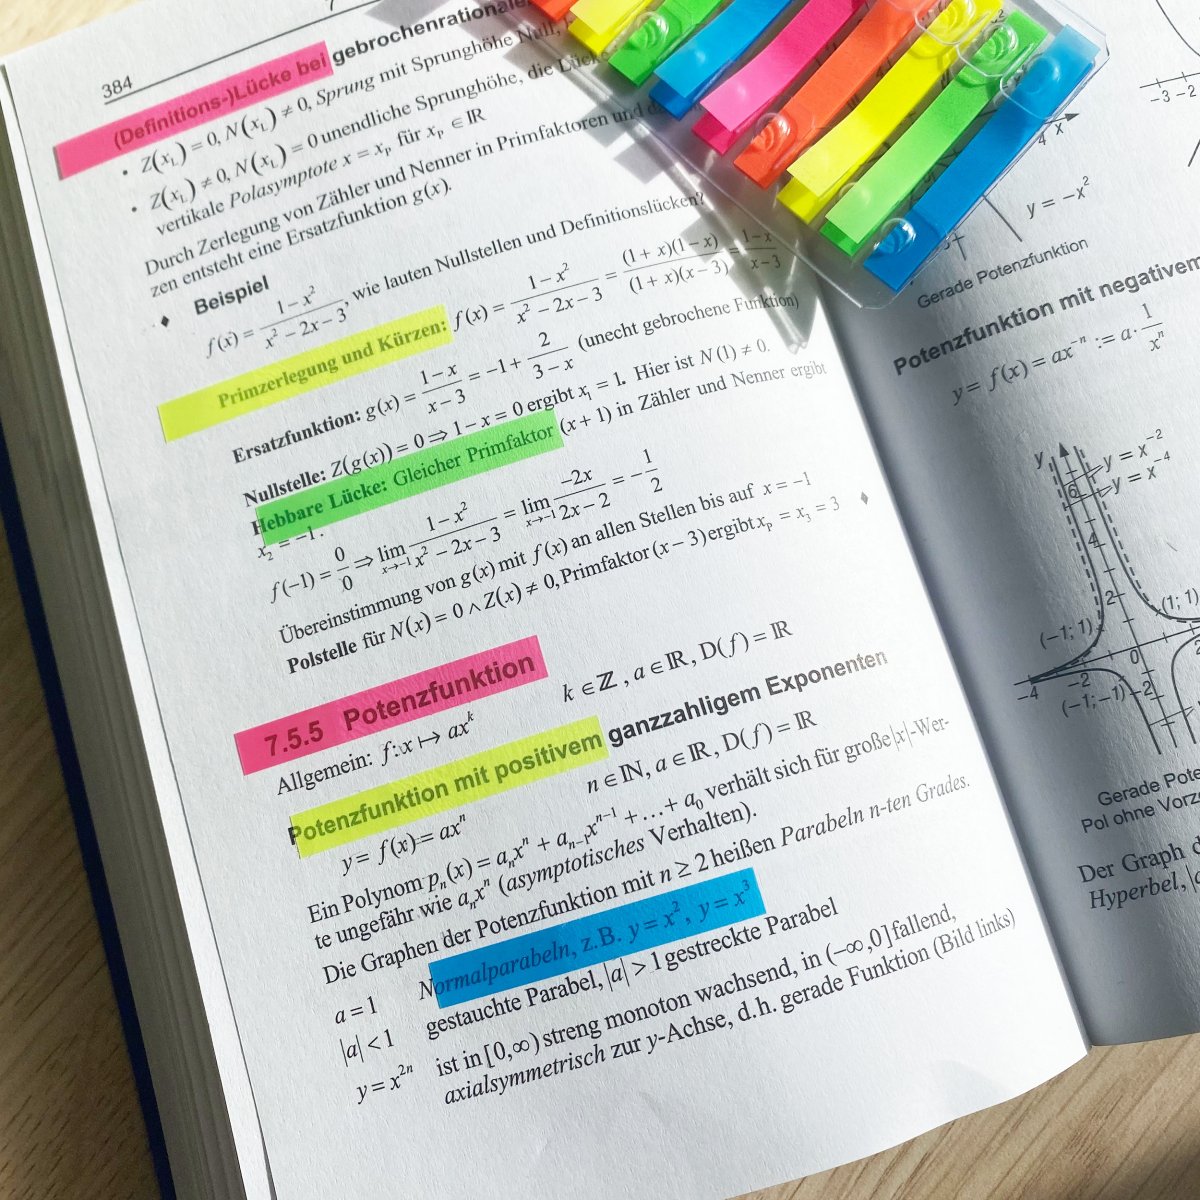 384
(Definitions-)Lücke bei gebrochenrationale
• Z(x_L) = 0, N(x_L) ≠ 0, Sprung mit Sprunghöhe Null,
• Z(x_L) ≠ 0, N(x_L) = 0 unendliche Sprunghöhe, die
vertikale Polasymptote x = x_P für x_P ∈ ℝ
Durch Zerlegung von Zähler und Nenner in Primfaktoren und
zen entsteht eine Ersatzfunktion g(x).
Beispiel
♦ f(x) = (1−x²)/(x² − 2x − 3), wie lauten Nullstellen und Definitionslücken?
Primzerlegung und Kürzen: f(x) = (1−x²)/(x² − 2x − 3) = ((1+x)(1−x))/((1+x)(x−3)) = (1−x)/(x−3)
Ersatzfunktion: g(x) = (1−x)/(x−3) = −1 + 2/(3−x) (unecht gebrochene Funktion)
Nullstelle: Z(g(x)) = 0 ⇒ 1 − x = 0 ergibt x₁ = 1. Hier ist N(1) ≠ 0.
Hebbare Lücke: Gleicher Primfaktor (x + 1) in Zähler und Nenner ergibt
x₂ = −1.
f(−1) = 0/0 ⇒ lim x→−1 (1−x²)/(x² − 2x − 3) = lim x→−1 (−2x)/(2x − 2) = −1/2
Übereinstimmung von g(x) mit f(x) an allen Stellen bis auf x = −1
Polstelle für N(x) = 0 ∧ Z(x) ≠ 0, Primfaktor (x − 3) ergibt x_P = x₃ = 3 ♦
7.5.5 Potenzfunktion
Allgemein: f: x ↦ ax^k k ∈ ℤ, a ∈ ℝ, D(f) = ℝ
Potenzfunktion mit positivem ganzzahligem Exponenten
y = f(x) = ax^n n ∈ ℕ, a ∈ ℝ, D(f) = ℝ
Ein Polynom p_n(x) = a_n x^n + a_{n−1} x^{n−1} + … + a₀ verhält sich für große |x|-Wer-
te ungefähr wie a_n x^n (asymptotisches Verhalten).
Die Graphen der Potenzfunktion mit n ≥ 2 heißen Parabeln n-ten Grades.
a = 1 Normalparabeln, z.B. y = x², y = x³
|a| < 1 gestauchte Parabel, |a| > 1 gestreckte Parabel
y = x^{2n} ist in [0,∞) streng monoton wachsend, in (−∞,0] fallend,
axialsymmetrisch zur y-Achse, d.h. gerade Funktion (Bild links)
−3 −2
4 x
y = −x²
Gerade Potenzfunktion
Potenzfunktion mit negativem
y = f(x) = ax^{−n} := a · 1/x^n
y
y = x^{−2}
y = x^{−4}
6
4
2
(−1; 1)
(1; 1)
0
−4
−2
(−1; −1)
−2
Gerade Pote
Pol ohne Vorz
Der Graph d
Hyperbel,